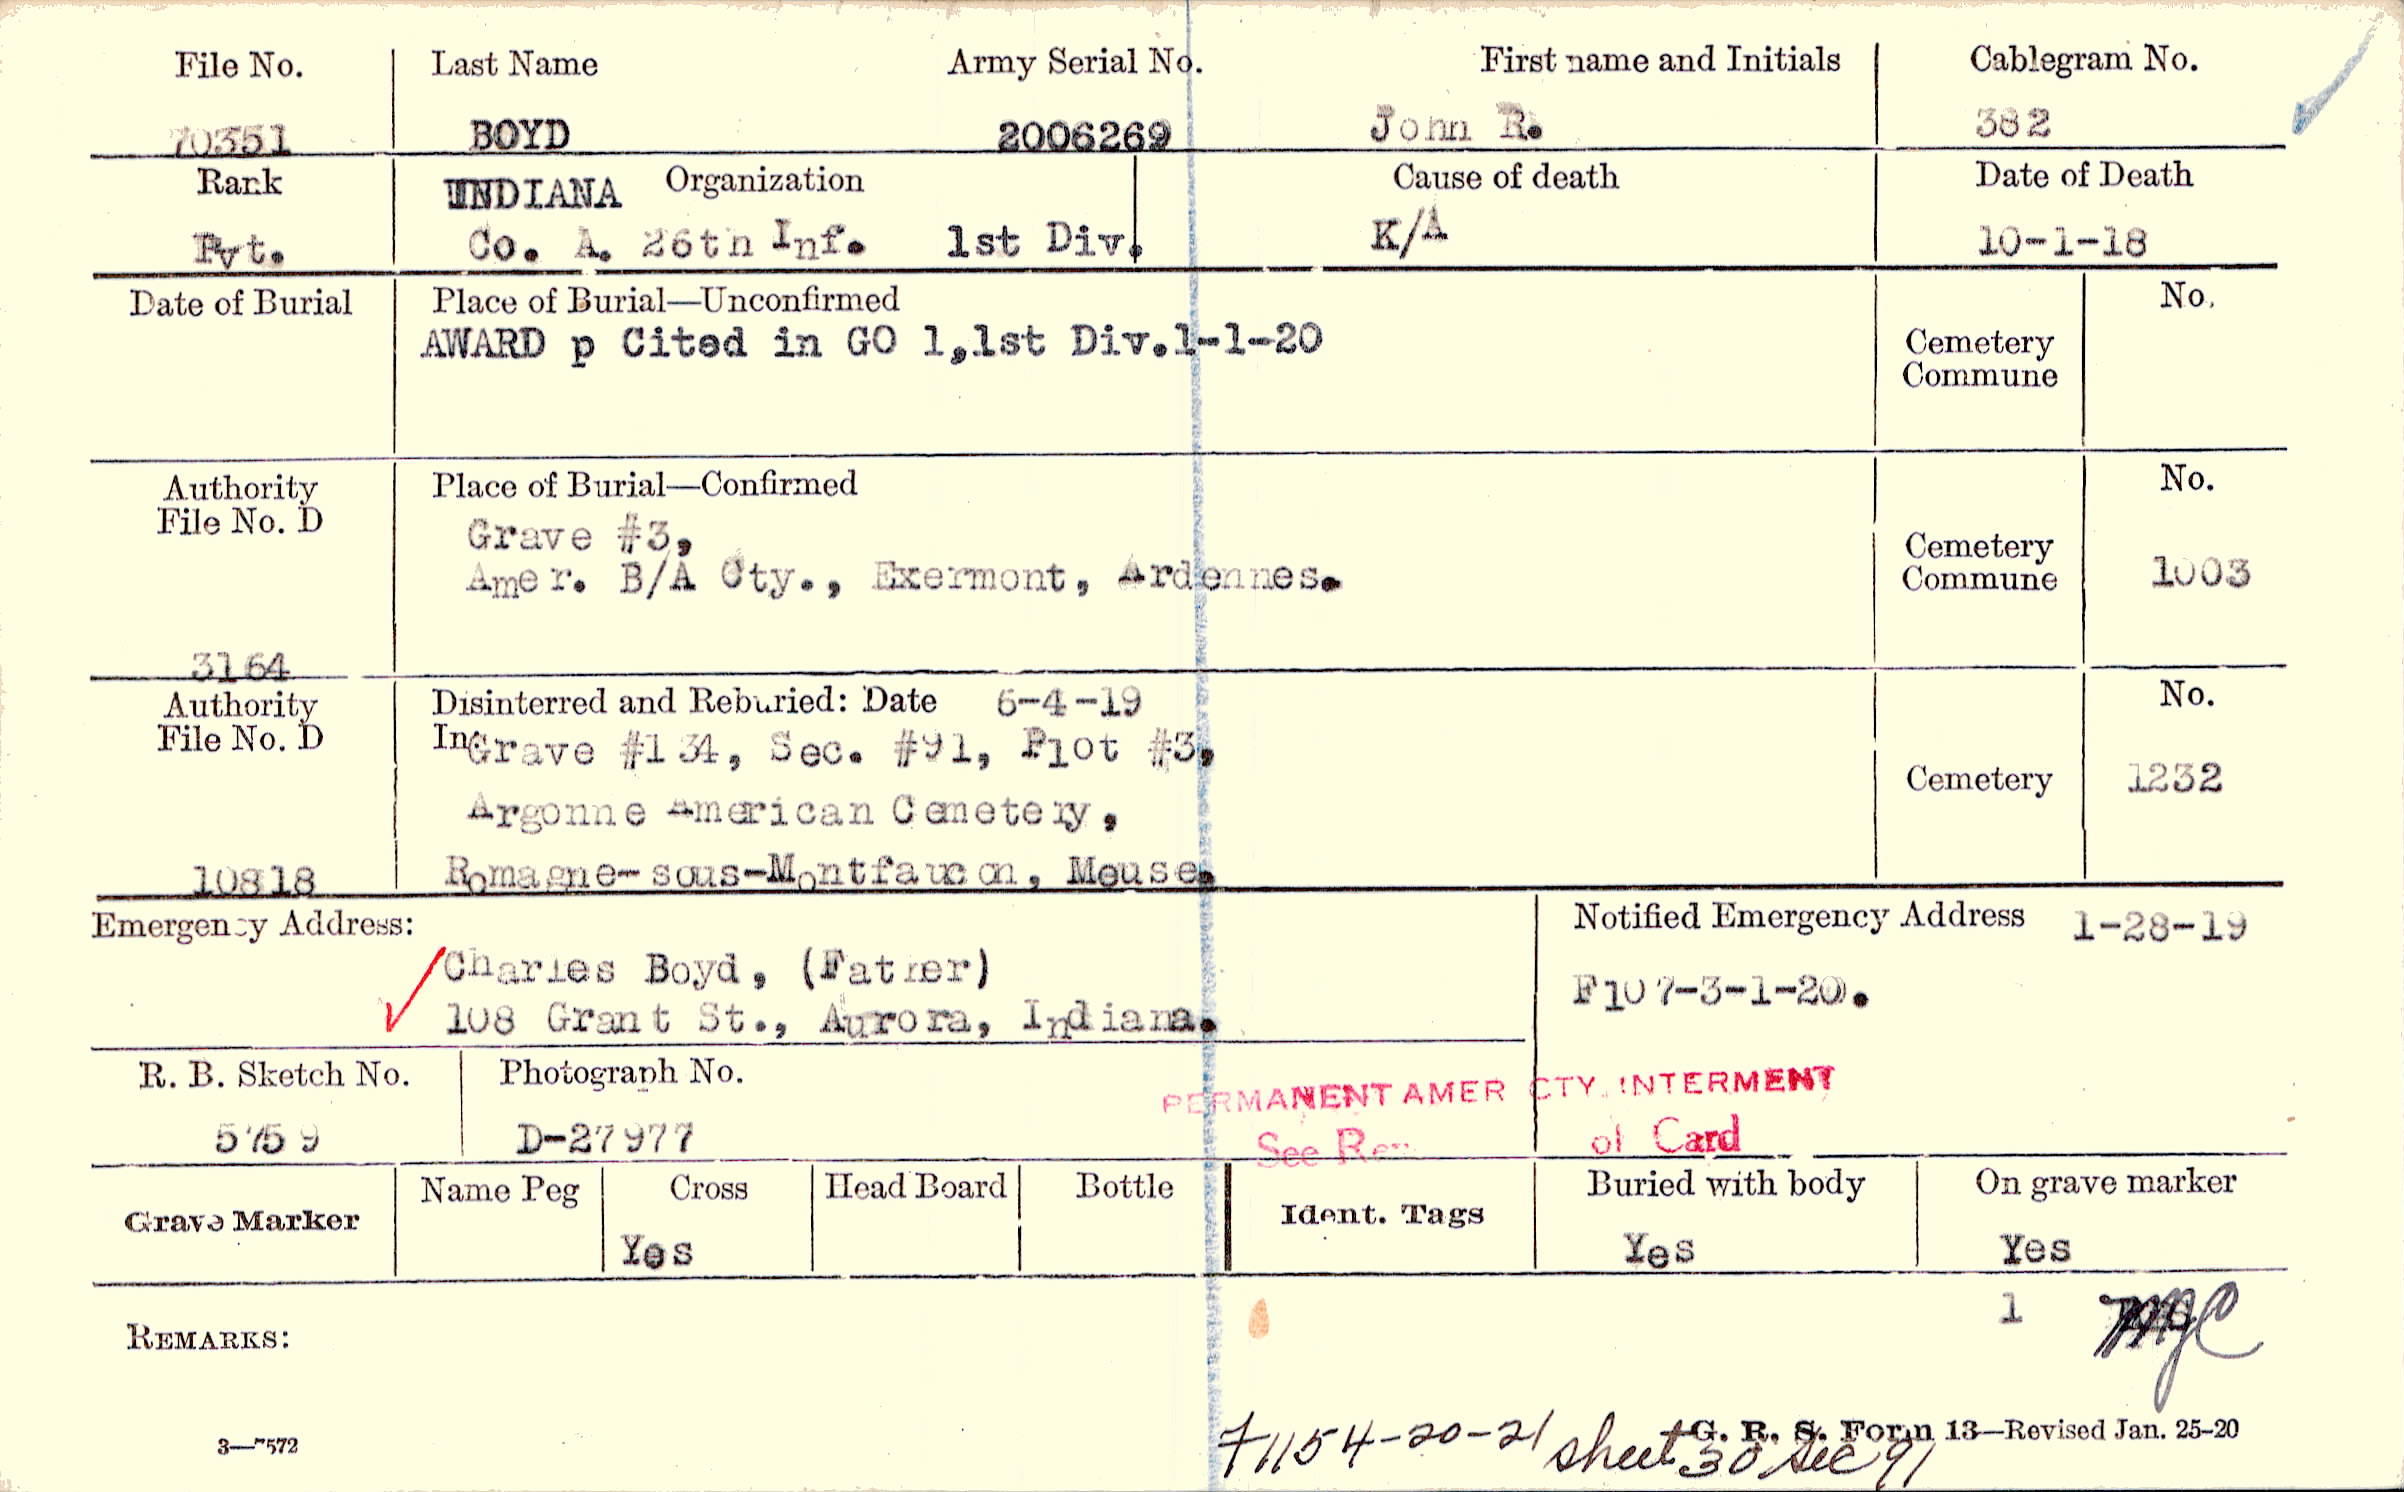 File No. Last Name Army Serial No. First name and Initials Cablegram No.
70351 BOYD 2006269 John R. 382
Rank INDIANA Organization Cause of death Date of Death
Pvt. Co. A. 26th Inf. 1st Div. K/A 10-1-18
Date of Burial Place of Burial—Unconfirmed No.
AWARD p Cited in GO 1,1st Div.1-1-20
Cemetery
Commune
Authority Place of Burial—Confirmed No.
File No. D
Grave #3,
Amer. B/A Cty., Exermont, Ardennes.
Cemetery
Commune 1003
3164
Authority Disinterred and Reburied: Date 6-4-19 No.
File No. D In Grave #134, Sec. #91, Plot #3,
Cemetery 1232
Argonne American Cemetery,
10818 Romagne-sous-Montfaucon, Meuse.
Emergency Address: Notified Emergency Address 1-28-19
Charles Boyd, (Father)
108 Grant St., Aurora, Indiana.
F107-3-1-20.
R. B. Sketch No. Photograph No.
PERMANENT AMER CTY. INTERMENT
5759 D-27977
See of Card
Grave Marker Name Peg Cross Head Board Bottle Ident. Tags Buried with body On grave marker
Yes Yes Yes
1
REMARKS:
3—7572
G. R. S. Form 13—Revised Jan. 25-20
71154-20-21 sheet 30 sec 91